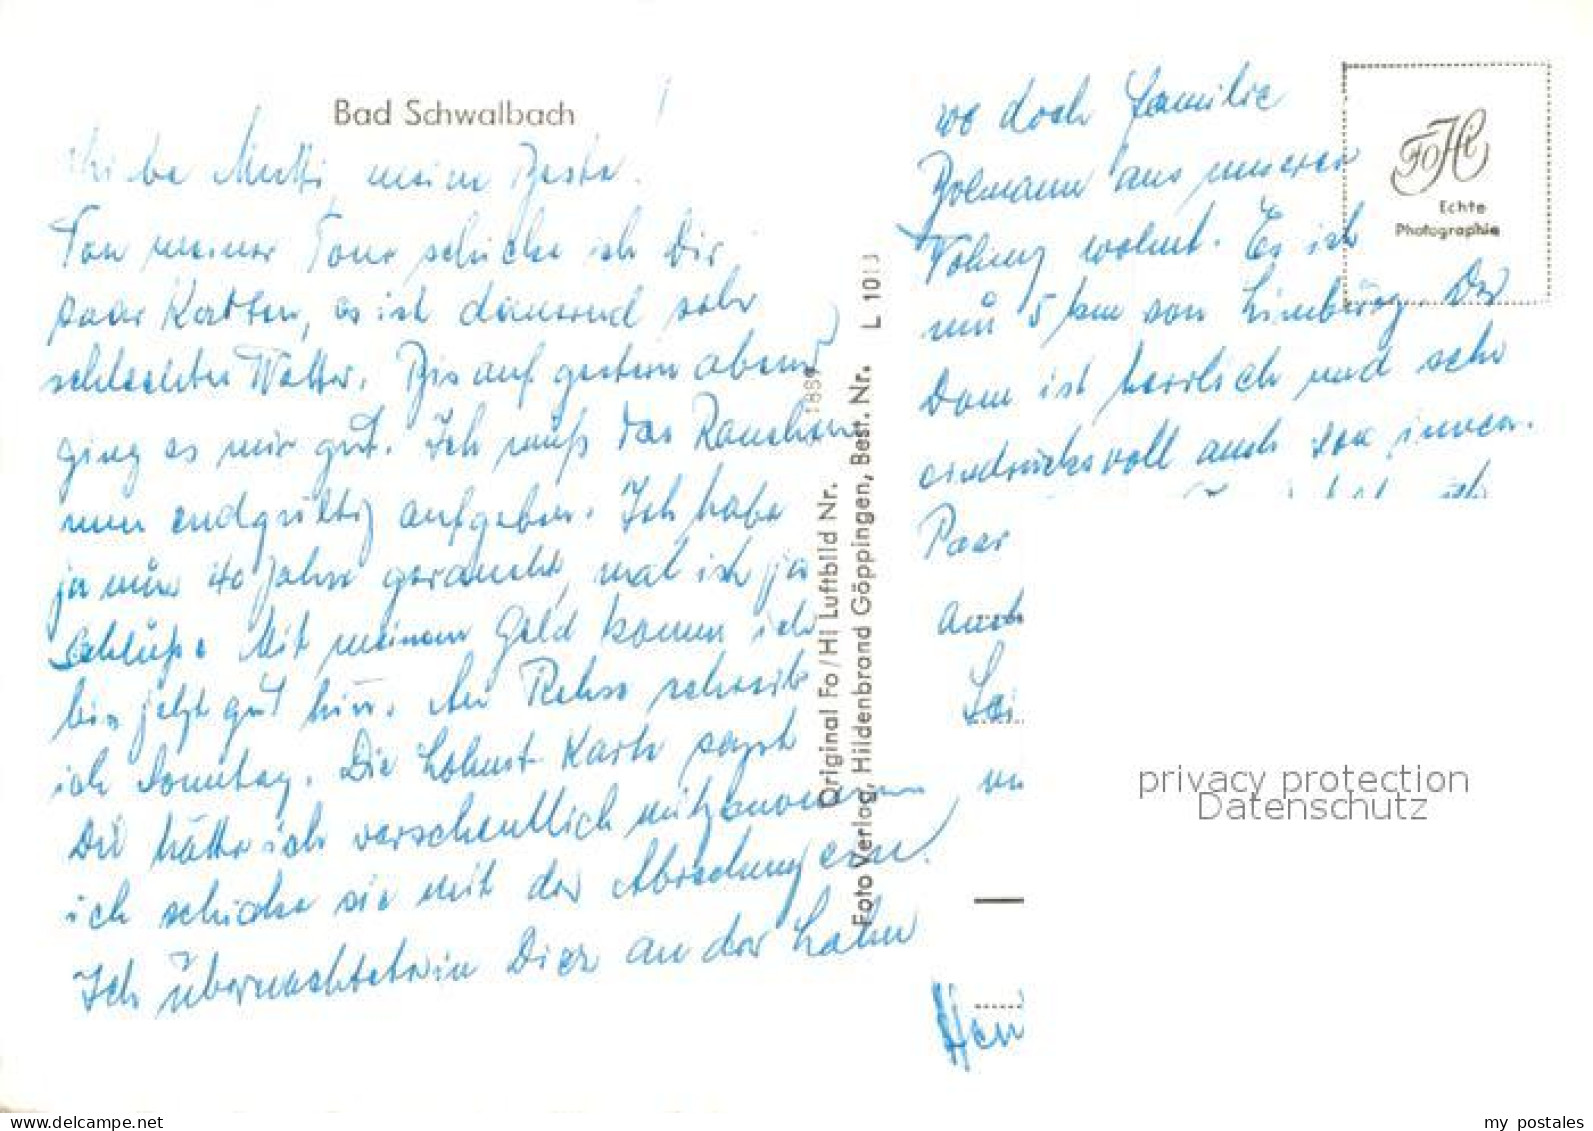 Bad Schwalbach
Liebe Mutti, meine Beste!
Von meiner Tour schicke ich Dir
paar Karten, es ist dauernd sehr
schlechtes Wetter. Bis auf gestern abend
ging es mir gut. Ich muß das Rauchen
nun endgültig aufgeben. Ich habe
ja nur 40 Jahre geraucht, mal ist ja
Schluß. Mit meinem Geld komm ich
bis jetzt gut hin. An schreib
ich Sonntag. Die Karte
Du hätte ich versehentlich mitgenommen,
ich schicke sie mit der Abrechnung ein.
Ich übernachtete in Diez an der Lahn
wo doch Familie
aus unserer
wohnt. Es ist
nur 5 km von Limburg. Der
Dom ist herrlich und sehr
eindrucksvoll auch von innen.
Paar
auch
Original Fo/Hi Luftbild Nr.
Foto Verlag, Hildenbrand Göppingen, Best. Nr. L 1013
FoHi
Echte
Photographie
privacy protection
Datenschutz
www.delcampe.net
my_postales